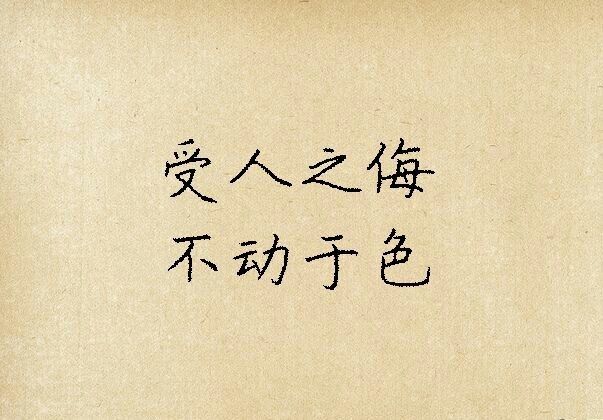 受人之侮
不动于色